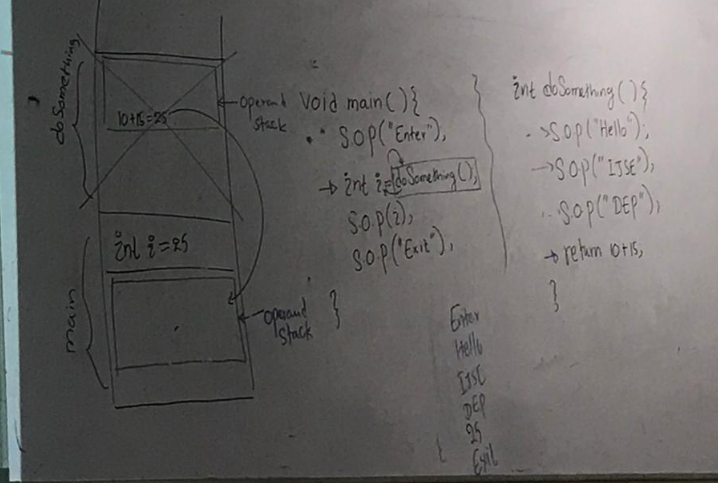 doSomething
10+15=25
operand
stack
int i=25
main
operand
stack
void main(){
S.O.P("Enter");
int i=doSomething();
S.O.P(i);
S.O.P("Exit");
}
int doSomething(){
S.O.P("Hello");
S.O.P("IJSE");
S.O.P("DEP");
return 10+15;
}
Enter
Hello
IJSE
DEP
25
Exit